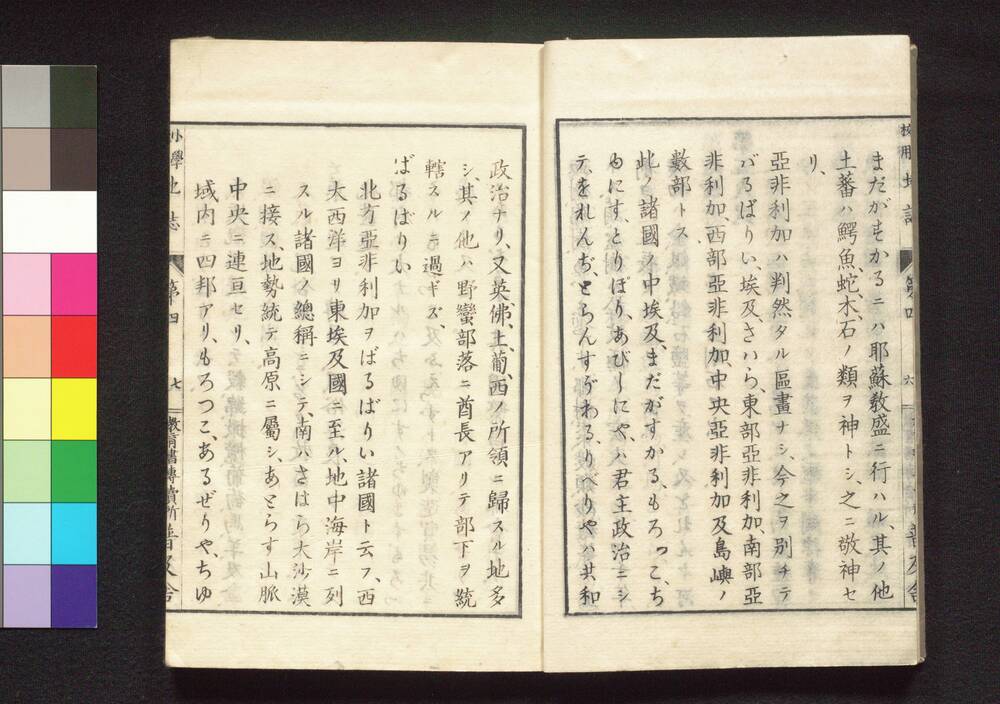 まだがすかるニハ耶蘇敎盛ニ行ハル、其ノ他
土蕃ハ鰐魚、蛇、木石ノ類ヲ神トシ、之ニ敬神セ
リ、
亞非利加ハ判然タル區畫ナシ、今之ヲ別チテ
バるばりい、埃及、さハら、東部亞非利加、南部亞
非利加、西部亞非利加、中央亞非利加及島嶼ノ
數部トス
此ノ諸國ノ中埃及、まだがすかる、もろつこ、ち
ゆにす、とりぽり、あびしにや、ハ君主政治ニシ
テ、をれんぢ、とらんすばわる、りべりやハ共和
政治ナリ、又英佛、土、葡西ノ所領ニ歸スル地多
シ、其ノ他ハ野蠻部落ニ酋長アリテ部下ヲ統
轄スルニ過ギズ、
ばるばりい
北方亞非利加ヲばるばりい諸國ト云フ、西
太西洋ヨリ東埃及國ニ至ル、地中海岸ニ列
スル諸國ノ總稱ニシテ、南ハさはら大沙漠
ニ接ス、地勢統テ高原ニ屬シ、あとらす山脈
中央ニ連亘セリ、
域内ニ四邦アリ、もろつこ、あるぜりや、ちゆ
小學地誌 第四 七 普及舍